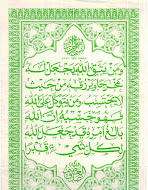 وَمَنْ يَتَّقِ اللَّهَ يَجْعَلْ لَهُ
مَخْرَجًا وَيَرْزُقْهُ مِنْ حَيْثُ
لَا يَحْتَسِبُ وَمَنْ يَتَوَكَّلْ عَلَى اللَّهِ
فَهُوَ حَسْبُهُ إِنَّ اللَّهَ
بَالِغُ أَمْرِهِ قَدْ جَعَلَ اللَّهُ
لِكُلِّ شَيْءٍ قَدْرًا